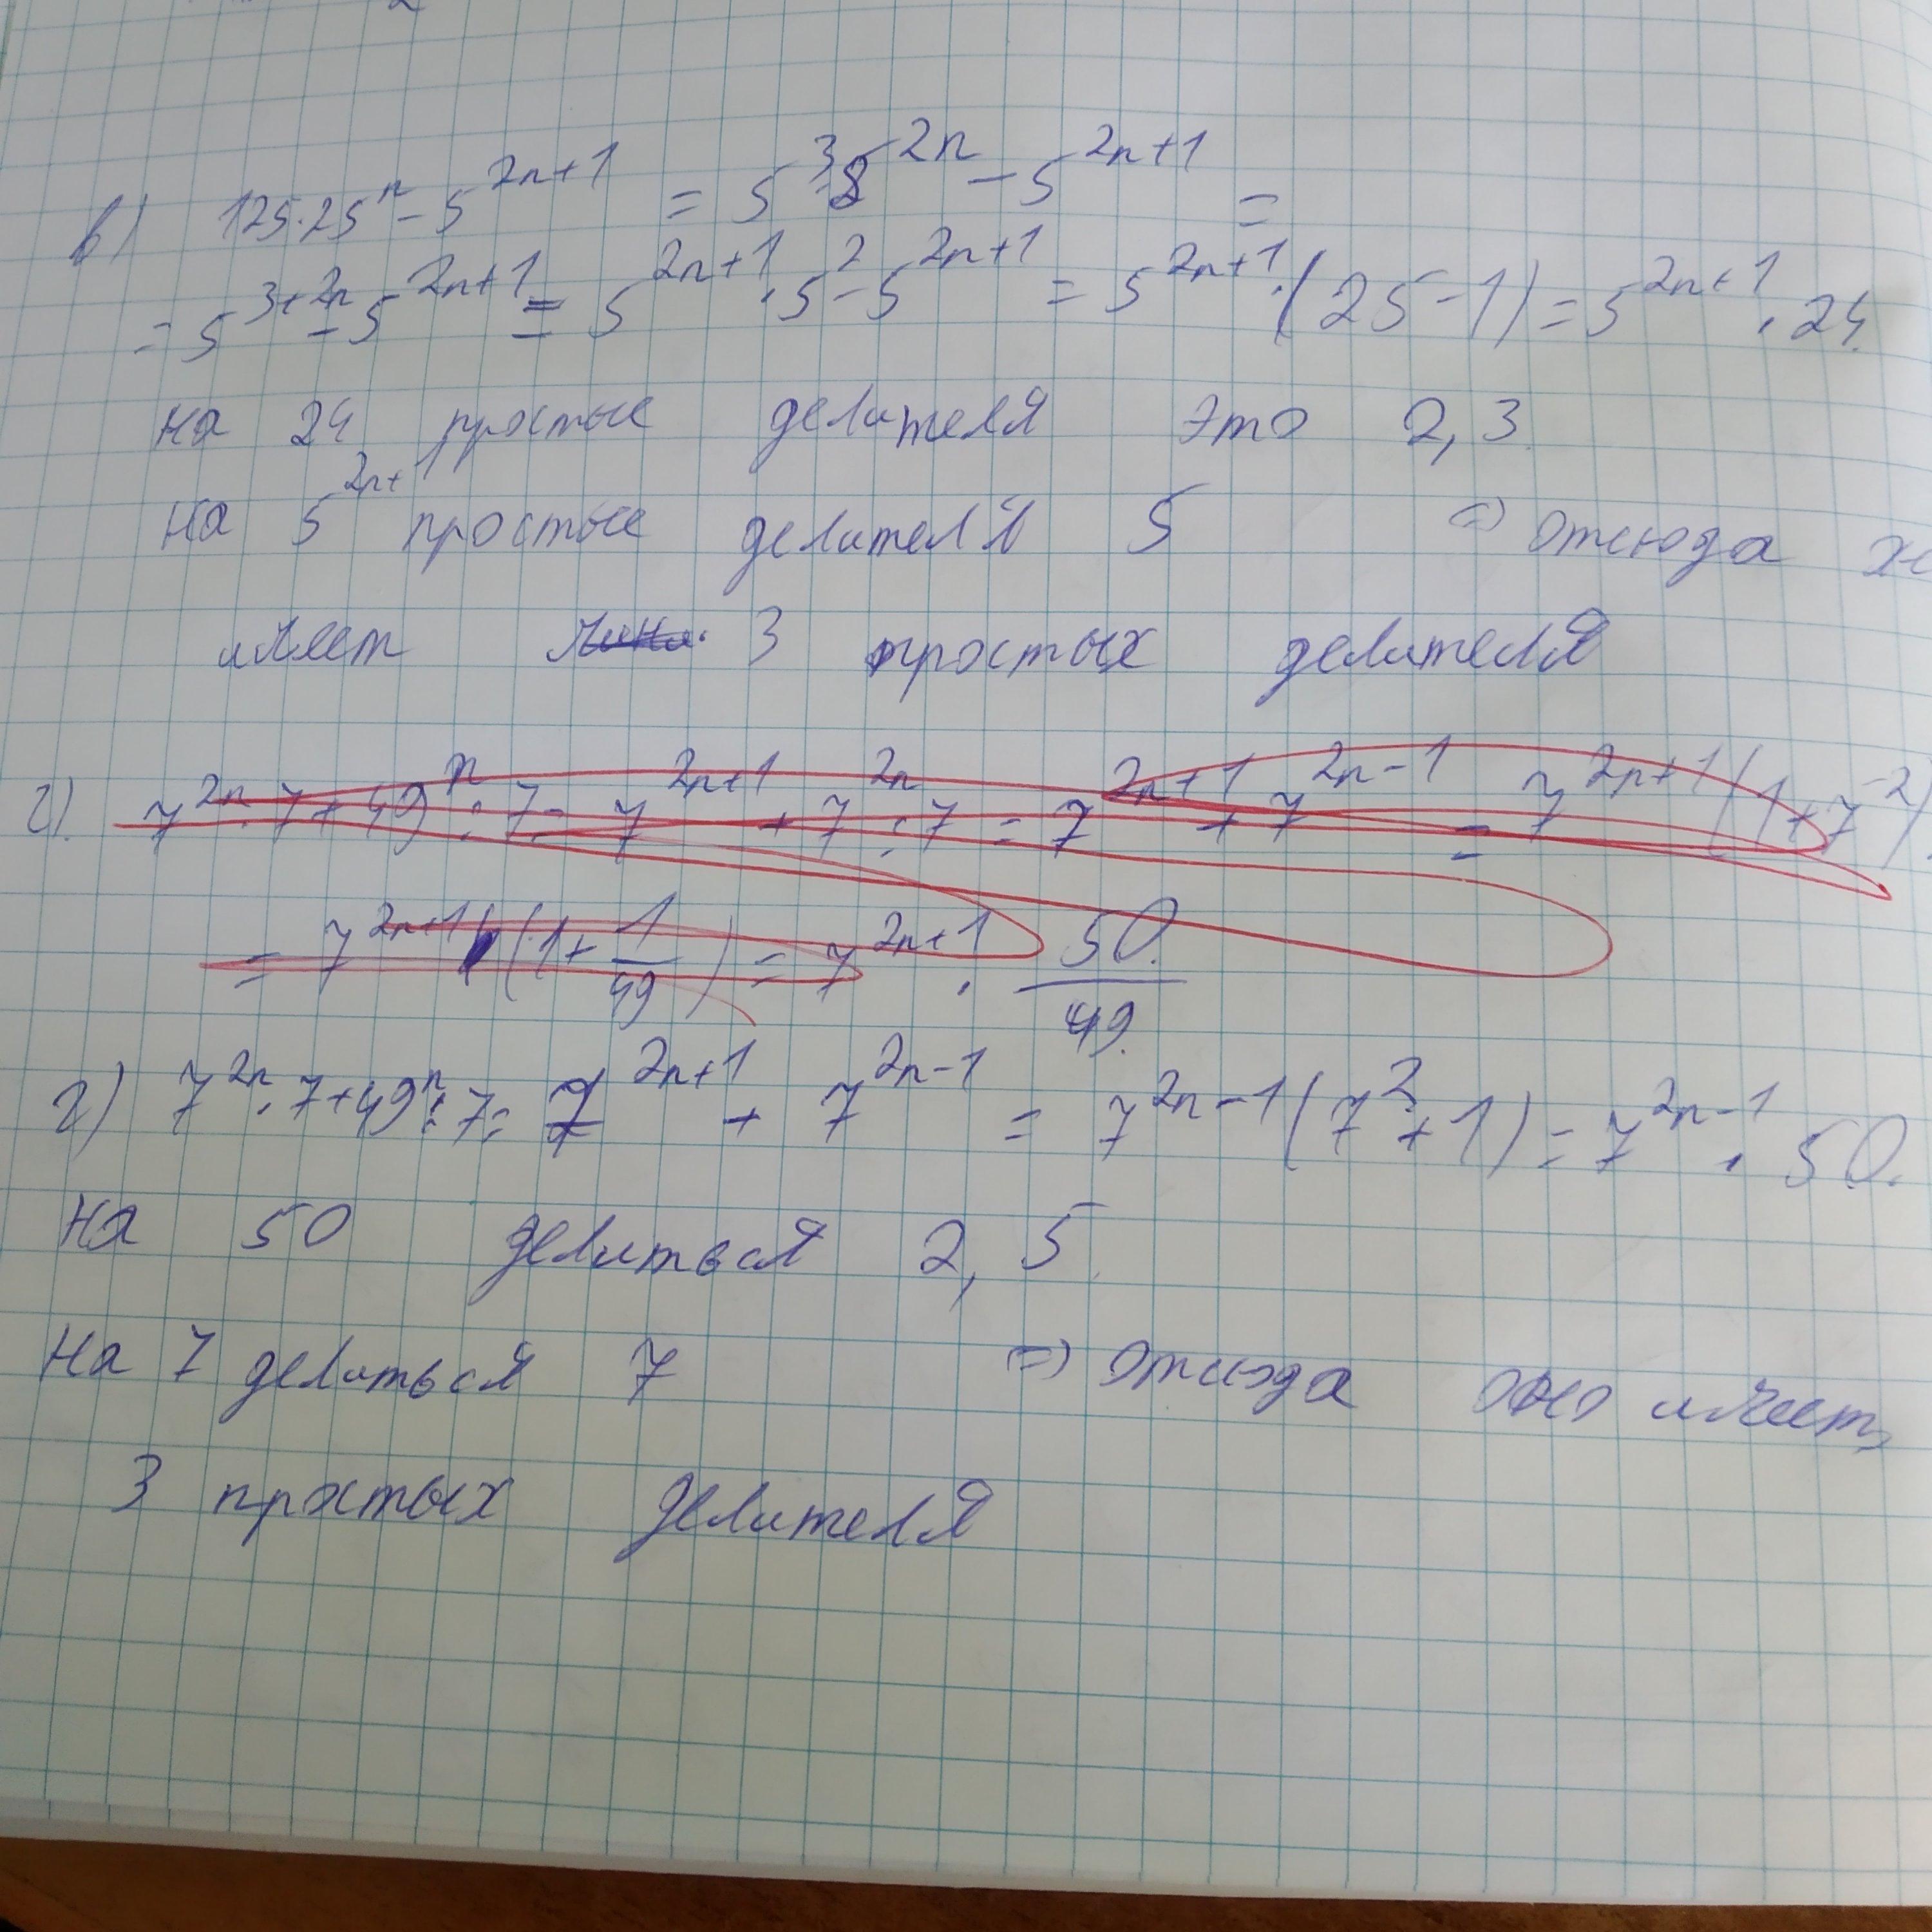 в) 125·25^n - 5^(2n+1) = 5^3·5^(2n) - 5^(2n+1) =
= 5^(3+2n) - 5^(2n+1) = 5^(2n+1)·5^2 - 5^(2n+1) = 5^(2n+1)·(25-1) = 5^(2n+1)·24.
на 24 простые делителя это 2, 3.
на 5^(2n+1) простые делитель 5 => отсюда
имеет 3 простых делителя
г). 7^(2n)·7+49^n:7= 7^(2n+1) + 7^(2n):7 = 7^(2n+1) + 7^(2n-1) = 7^(2n+1)(1+7^(-2))
= 7^(2n+1)(1+1/49) = 7^(2n+1)·50/49.
г) 7^(2n)·7+49^n:7= 7^(2n+1) + 7^(2n-1) = 7^(2n-1)(7^2+1) = 7^(2n-1)·50.
на 50 делиться 2, 5.
на 7 делиться 7 => отсюда оно имеет
3 простых делителя